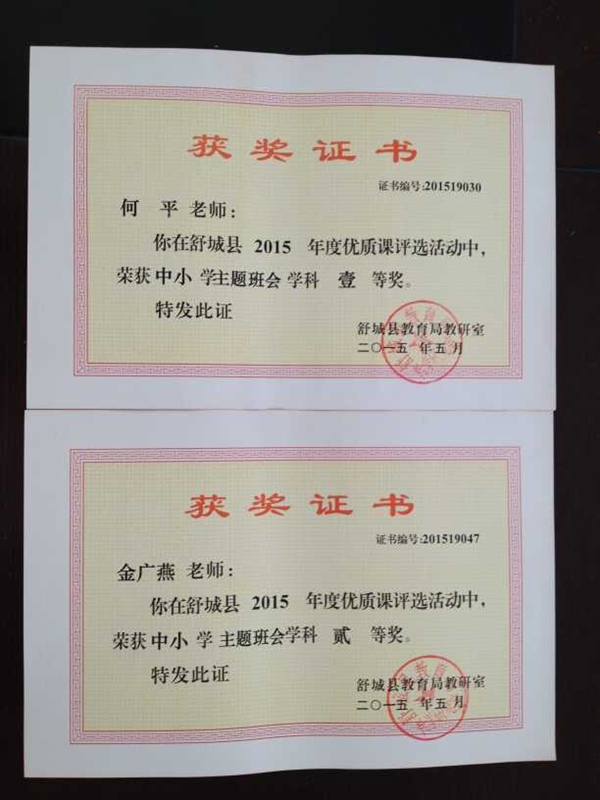 获奖证书
证书编号:201519030
何 平 老师:
你在舒城县 2015 年度优质课评选活动中,
荣获中小 学主题班会 学科 壹 等奖。
特发此证
舒城县教育局教研室
二〇一五 年 五 月
获奖证书
证书编号:201519047
金广燕 老师:
你在舒城县 2015 年度优质课评选活动中,
荣获 中小 学 主题班会学科 贰 等奖。
特发此证
舒城县教育局教研室
二〇一五 年 五 月